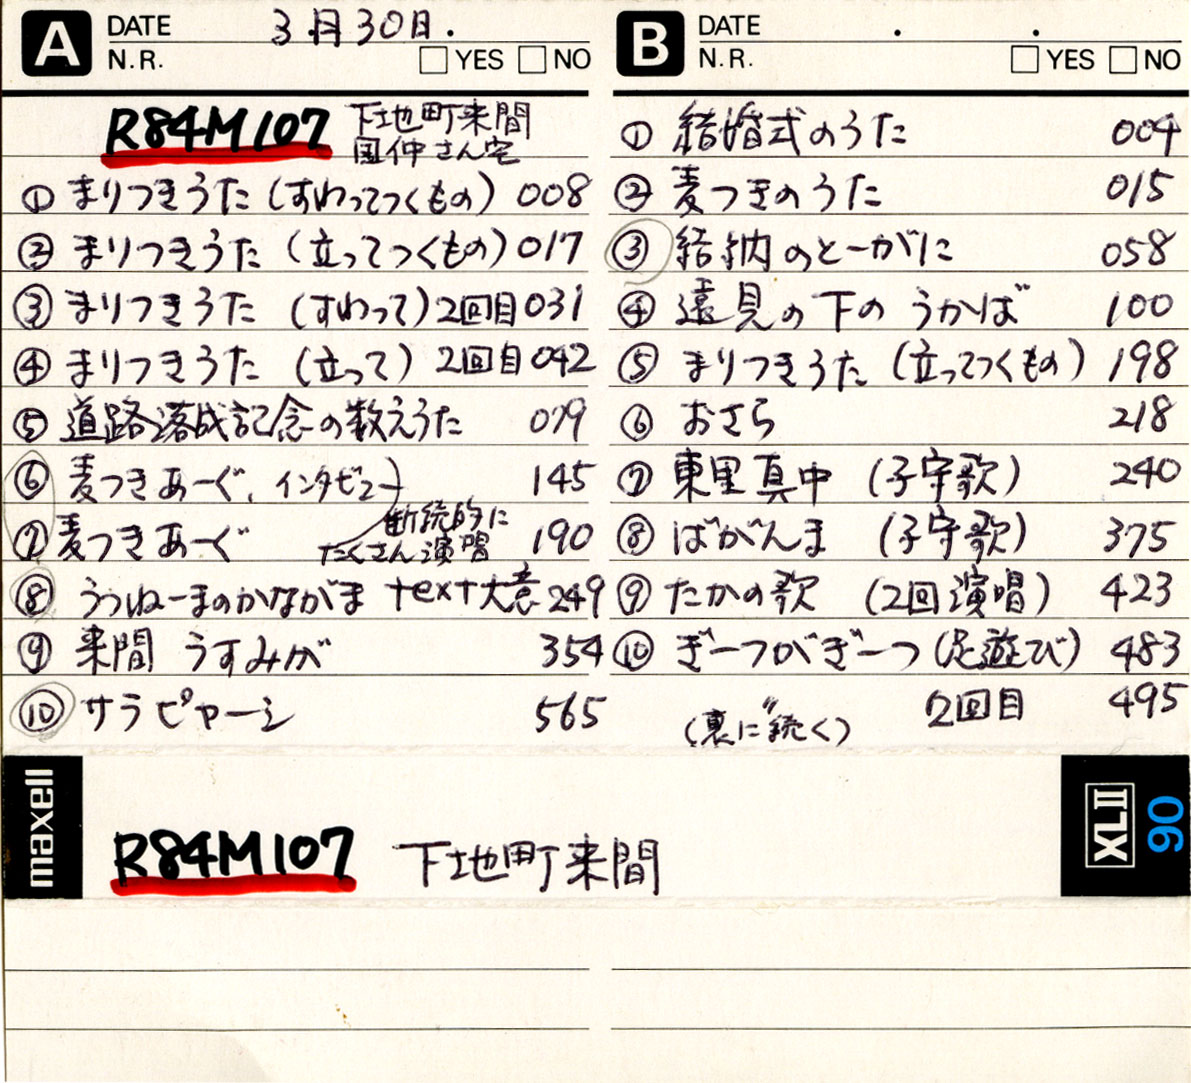 A DATE 3月30日.
N.R. YES NO
R84M107 下地町来間
国仲さん宅
① まりつきうた (すわってつくもの) 008
② まりつきうた (立ってつくもの) 017
③ まりつきうた (すわって) 2回目 031
④ まりつきうた (立って) 2回目 042
⑤ 道路落成記念の数えうた 079
⑥ 麦つきあーぐ、インタビュー 145
⑦ 麦つきあーぐ 断続的に
たくさん演唱 190
⑧ うぅねーまのかながま text大意 249
⑨ 来間 うすみが 354
⑩ サラピャーシ 565
B DATE . .
N.R. YES NO
① 結婚式のうた 004
② 麦つきのうた 015
③ 結納のとーがに 058
④ 遠見の下の うかば 100
⑤ まりつきうた (立ってつくもの) 198
⑥ おさら 218
⑦ 東里真中 (子守歌) 240
⑧ ばがんま (子守歌) 375
⑨ たかの歌 (2回演唱) 423
⑩ ぎーつがぎーつ (足遊び) 483
〃 2回目 495
(裏に続く)
maxell
R84M107 下地町来間
XLII 90